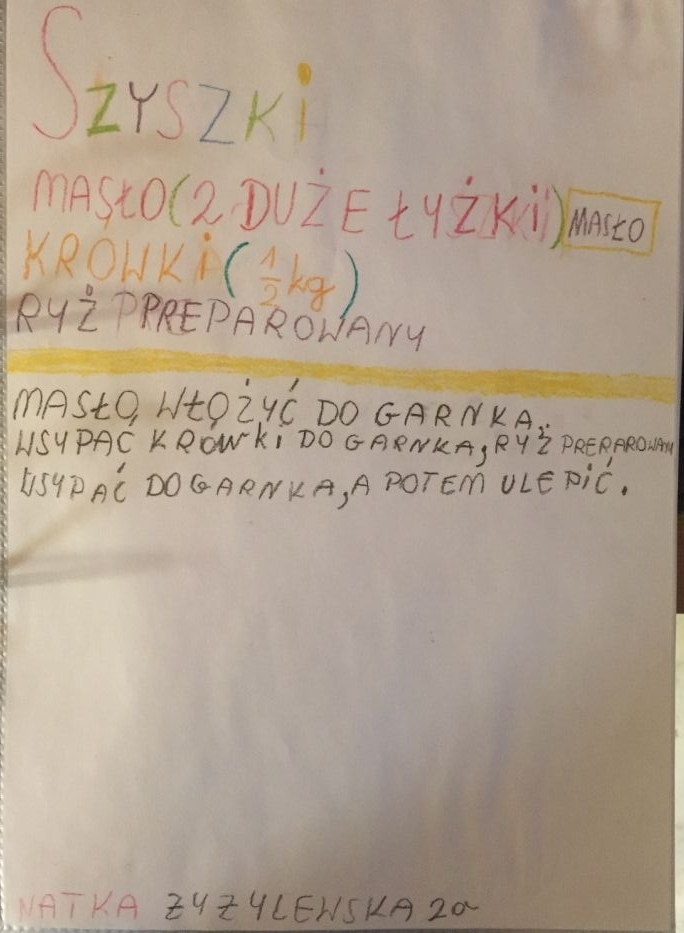 SZYSZKI
MASŁO (2 DUŻE ŁYŻKI) MASŁO
KROWKI (1/2 kg)
RYŻ PPREPAROWANY
MASŁO WŁOŻYĆ DO GARNKA.
WSYPAĆ KRÓWKI DO GARNKA, RYŻ PREPAROWANY
WSYPAĆ DO GARNKA, A POTEM ULEPIĆ.
NATKA ZYZYLEWSKA 2a